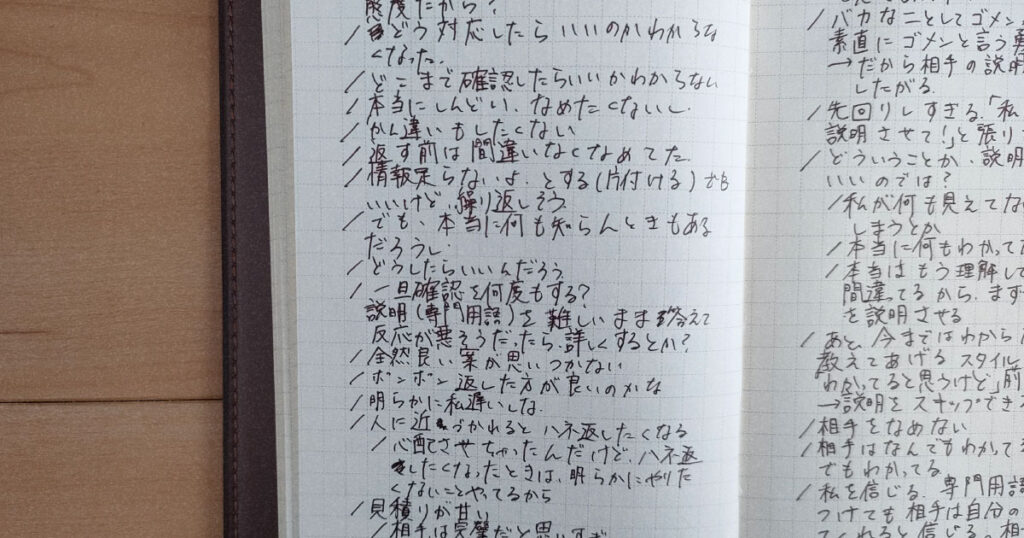 態度だから?
/どう対応したらいいのかわからな
くなった.
/どこまで確認したらいいかわからない
/本当にしんどい. なめたくないし.
/かん違いもしたくない
/返す前は間違いなくなめてた.
/情報足らないよ. とする(片付ける)でも
いいけど、繰り返しそう
/でも、本当に何も知らんときもある
だろうし.
/どうしたらいいんだろう
/一旦確認を何度もする?
説明(専門用語)を難しいまま答えて
反応が悪そうだったら詳しくするとか?
/全然良い案が思いつかない
/ポンポン返した方が良いのかな
/明らかに私遅いしな.
/人に近づかれるとハネ返したくなる
/心配させちゃったんだけど、ハネ返
したくなったときは、明らかにやりた
くないことやってるから
/見積りが甘い
/相手は完璧だと思いすぎ
/バカなことしてゴメン
素直にゴメンと言う
→だから相手の説明
したがる.
/先回りしすぎる.「私
説明させて!」と張り
/どういうことか、説明
いいのでは?
/私が何も見えてな
しまうとか
/本当に何もわかって
/本当はもう理解して
間違ってるから、まず
を説明させる
/あと、今まではわから
教えてあげるスタイル
わかってると思うけど」前
→説明をスキップでき
/相手をなめない
/相手はなんでもわかって
でもわかってる
/私を信じる. 専門用語
つけても相手は自分の
てくれると信じる. 相